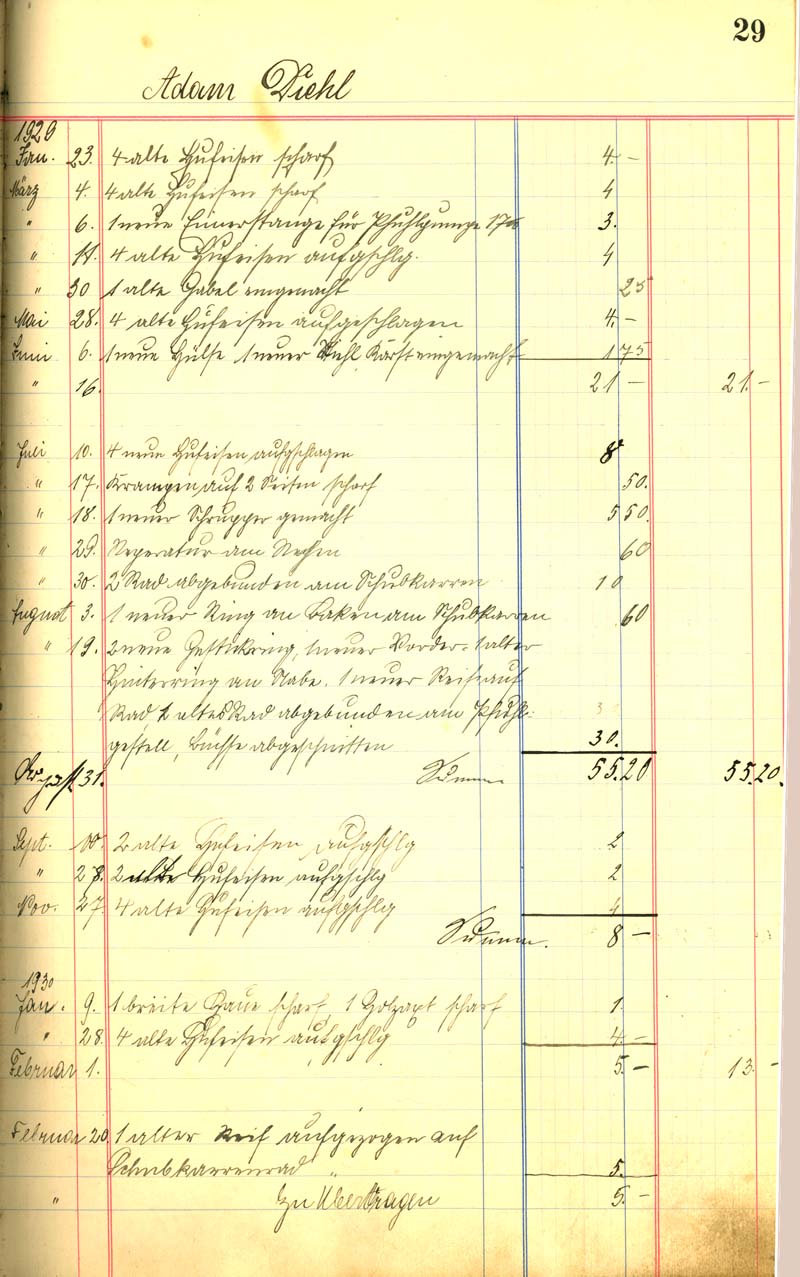 29
Adam Diehl
1929
Jan. 23. 4 alte Hufeisen scharf 4. –
März 4. 4 alte Hufeisen scharf 4
" 6. 1 neue Eimerstange für Pfuhlpumpe 3.
" 11. 4 alte Hufeisen aufgschlg. 4
" 30 1 alte Gabel eingemacht 25
Mai 28. 4 alte Hufeisen aufgeschlagen 4. –
Juni 6. 1 neue Hülse 1 neuer Stiehl Karst eingemacht 1 75
" 16. 21 – 21. –
Juli 10. 4 neue Hufeisen aufgschlagen 8
" 17. Krampen auf 2 Seiten scharf 50.
" 18. 1 neuer Schrupper gemacht 5 50.
" 29. Reperatur am Rechen 60
" 30. 2 Rad abgebunden am Schubkarren 10
August 3. 1 neuer Ring an Baken am Schubkarren 60
" 19. 2 neue Ring, 1 neuer Vorder- 1 alter
Hinterring an Nabe. 1 neuer Reif auf
Rad 1 altes Rad abgebunden am Pfuhl-
gestell, Büchse abgeschnitten 30.
31. Summe 55.20 55.20.
Sept. 2 alte Hufeisen aufgschlg 2
" 28. 2 alte Hufeisen aufgschlg 2
Nov. 27. 4 alte Hufeisen aufgschlg 4
Summe. 8 –
1930
Jan. 9. 1 breite Haue scharf, 1 Holzaxt scharf 1.
" 28. 4 alte Hufeisen aufgschlg 4 –
Februar 1. 5. – 13. –
Februar 20. 1 alter Reif aufgezogen auf
Schubkarrenrad " 5.
" Zu Übertragen 5. –